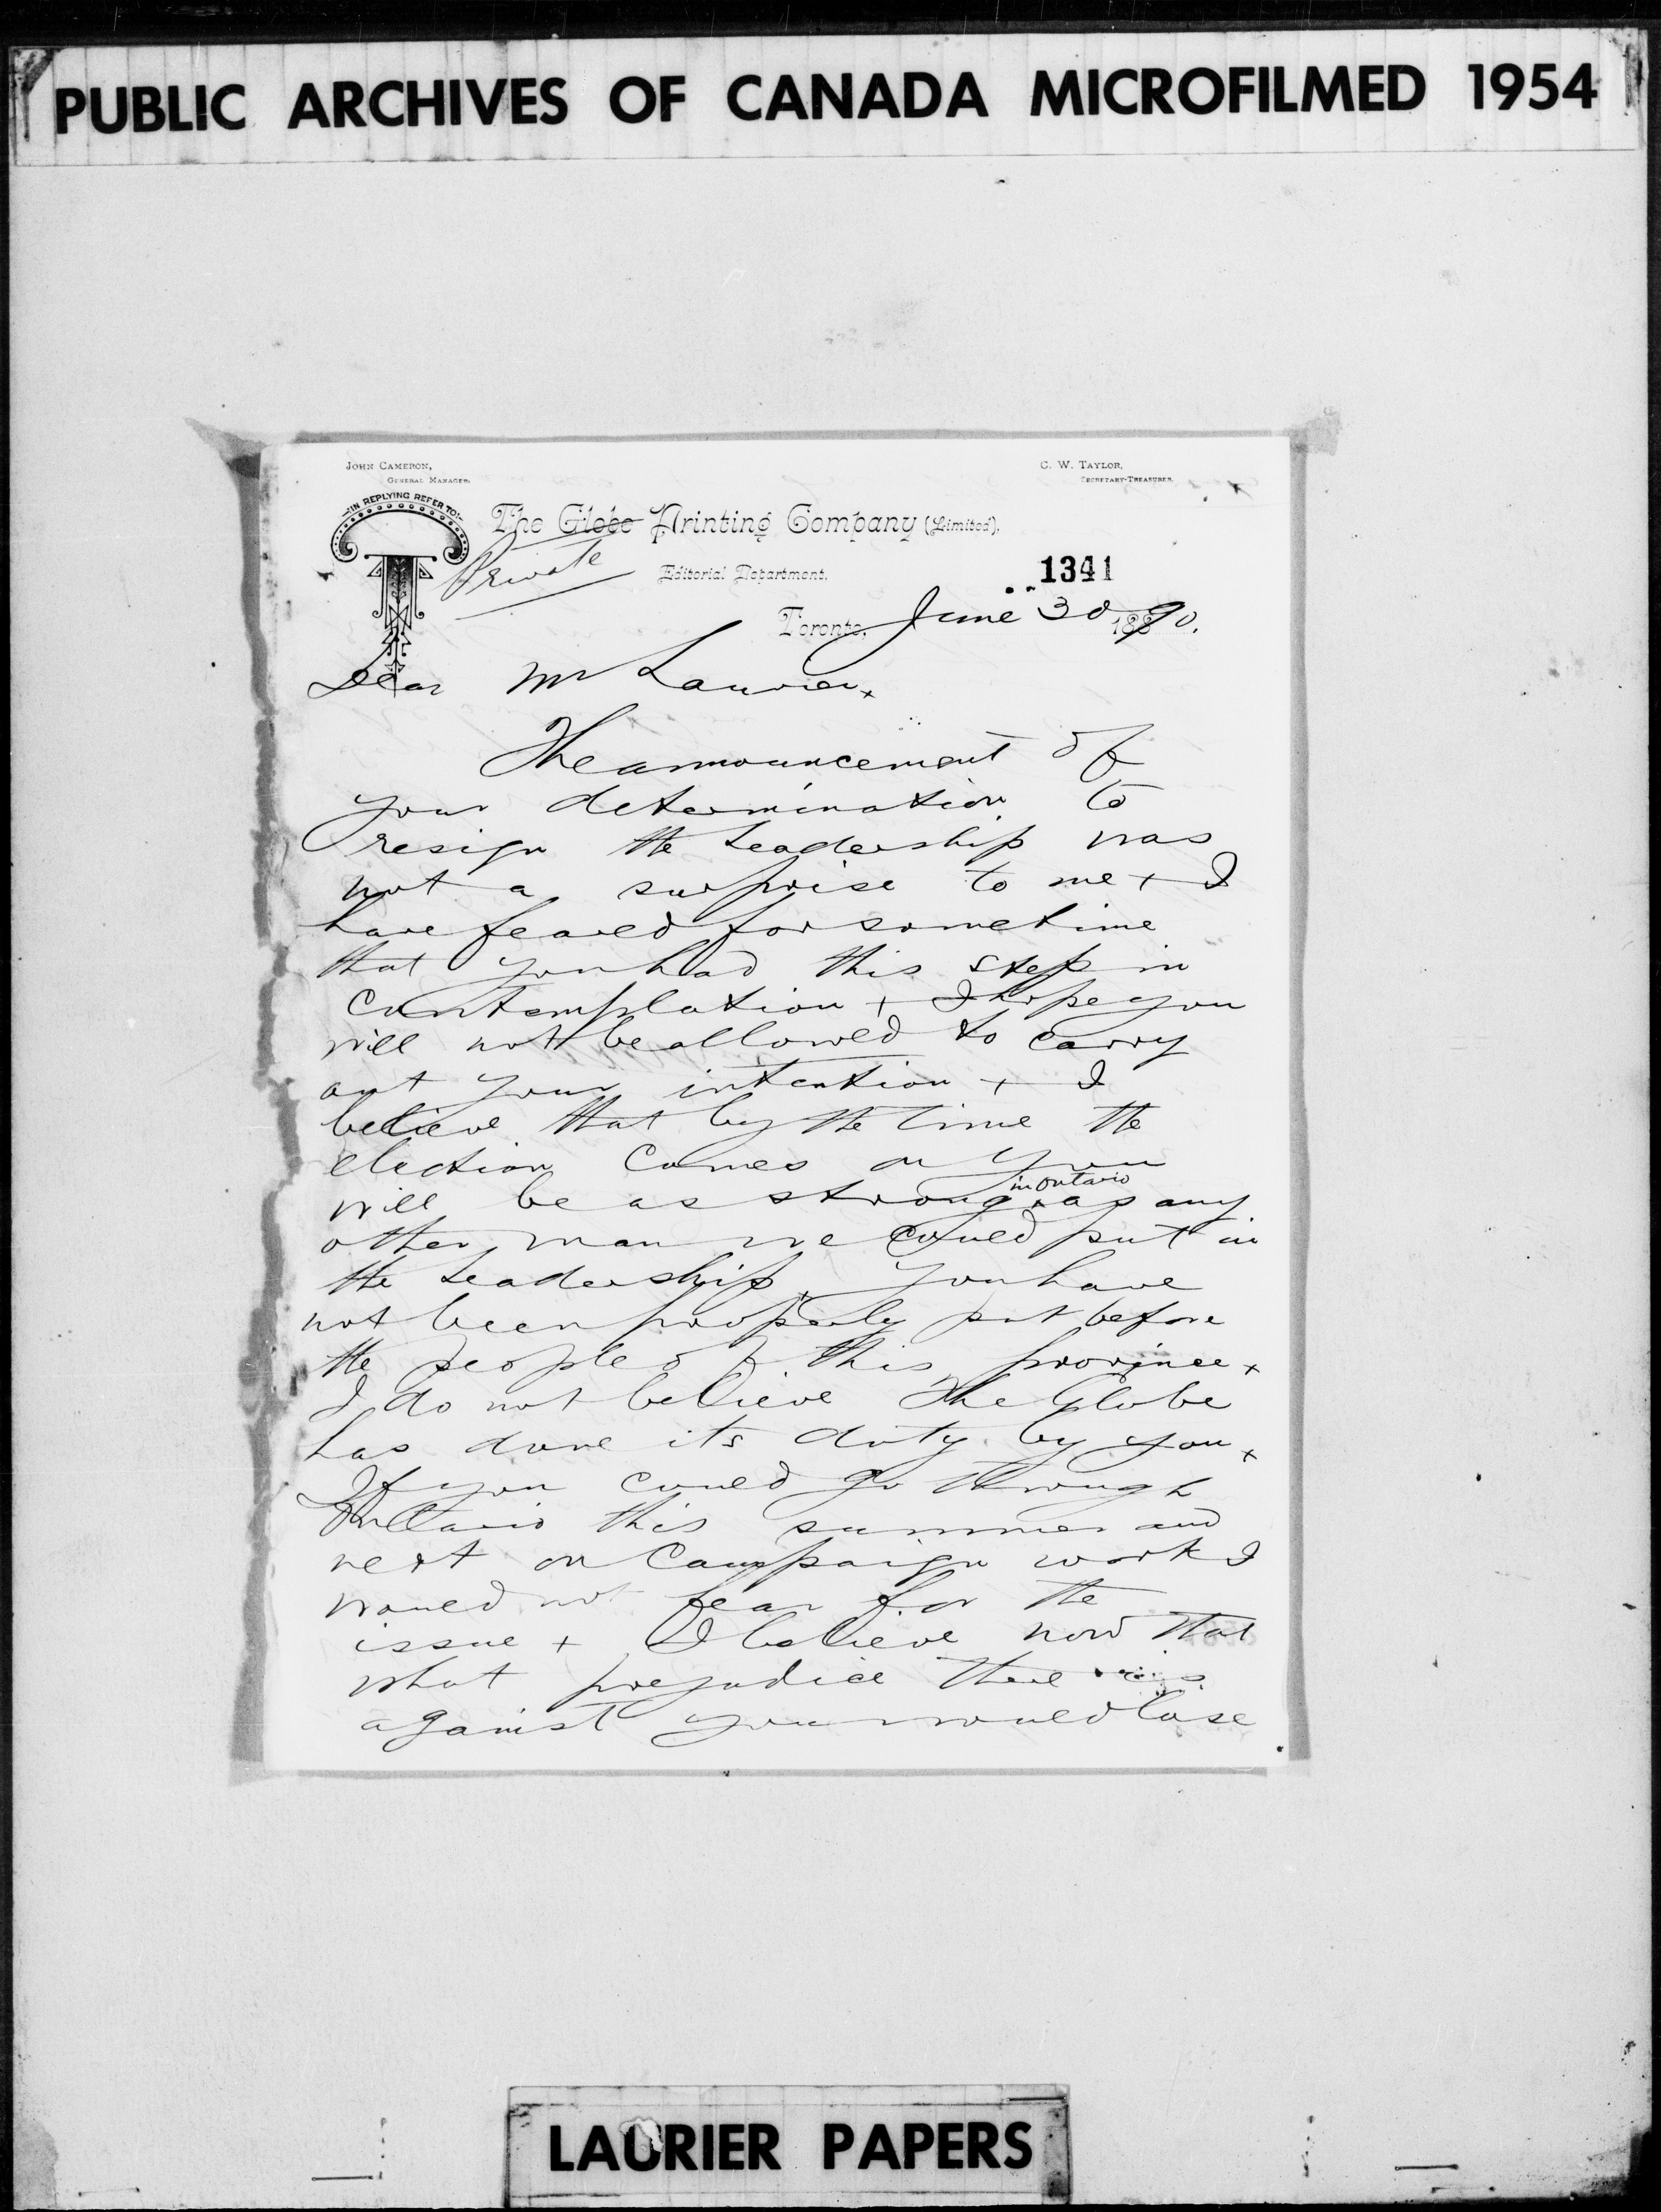 PUBLIC ARCHIVES OF CANADA MICROFILMED 1954
JOHN CAMERON,
GENERAL MANAGER.
C. W. TAYLOR,
SECRETARY-TREASURER.
IN REPLYING REFER TO
The Globe Printing Company (Limited),
Private
Editorial Department.
1341
Toronto, June 30 188 90.
Dear Mr Laurier x
The announcement of
your determination to
resign the leadership was
not a surprise to me x I
have feared for sometime
that you had this step in
contemplation x I hope you
will not be allowed to carry
out your intention x I
believe that by the time the
election comes on you
in Ontario
will be as strong as any
other man we could put in
the leadership. You have
not been properly put before
the people of this province x
I do not believe The Globe
has done its duty by you x
If you could go through
Ontario this summer and
next on campaign work I
would not fear for the
issue x I believe now that
what prejudice there is
against you would lose
LAURIER PAPERS